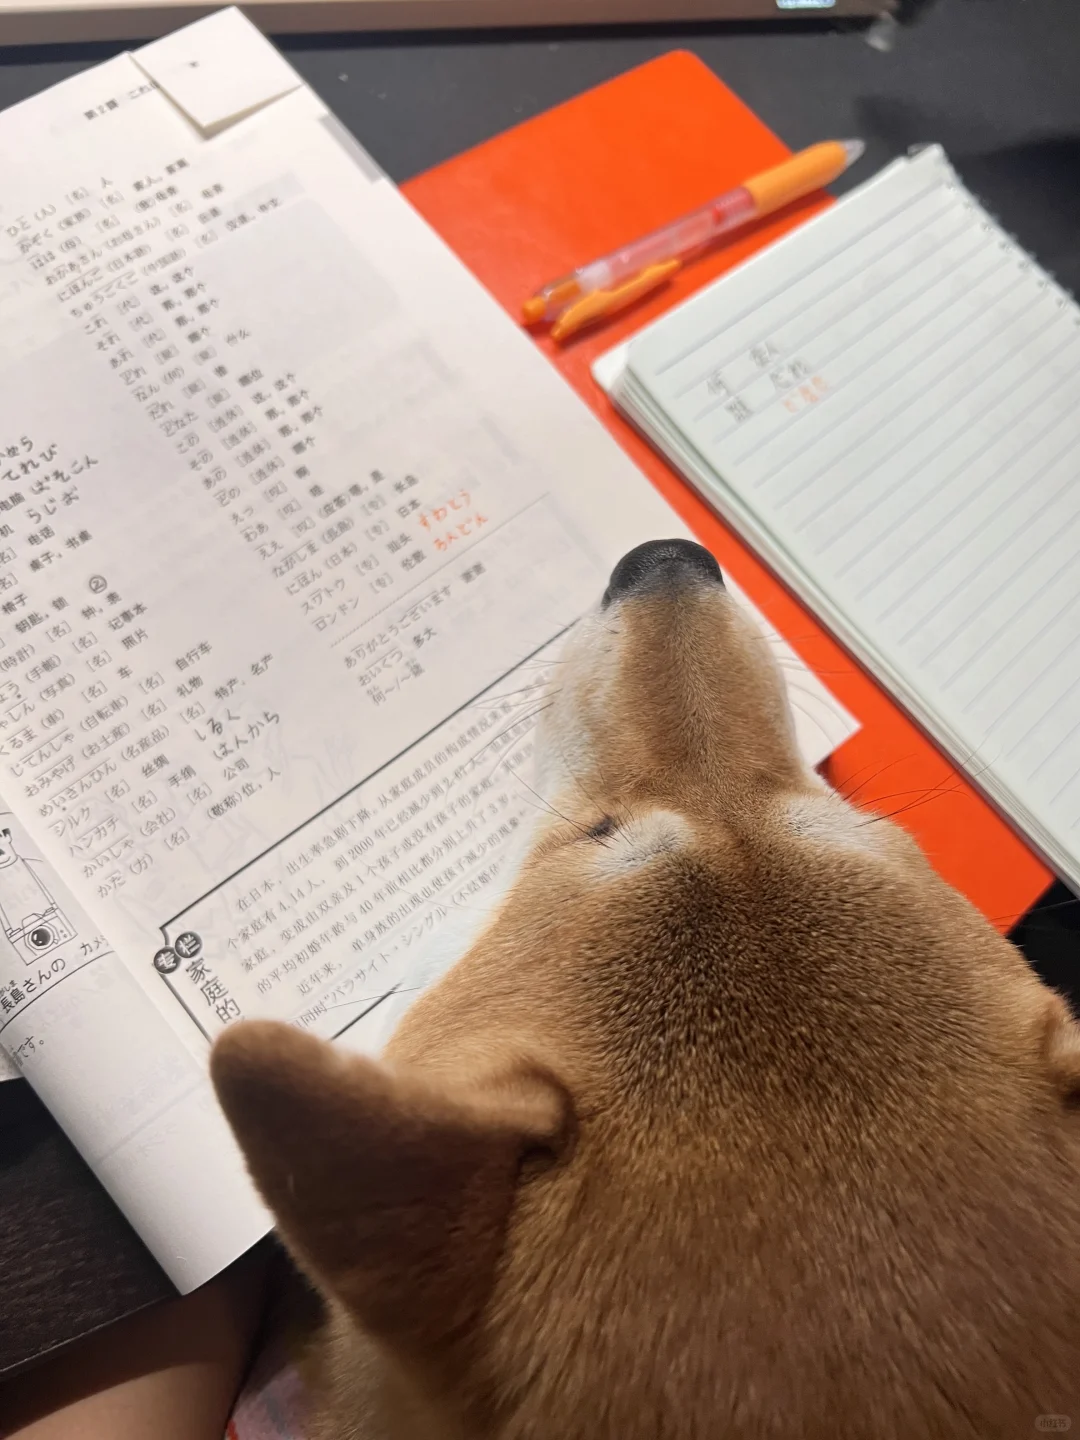 第2課 これは
ひと（人） [名] 人
かぞく（家族） [名] 家人，家属
はは（母） [名] （我）母亲
おかあさん（お母さん） [名] 母亲
にほんご（日本語） [名] 日语
ちゅうごくご（中国語） [名] 汉语，中文
これ [代] 这，这个
それ [代] 那，那个
あれ [代] 那，那个
どれ [疑] 哪个
なん（何） [疑] 什么
だれ [疑] 谁
どなた [疑] 哪位
この [连体] 这，这个
その [连体] 那，那个
あの [连体] 那，那个
どの [连体] 哪个
えっ [叹] 啊
わあ [叹] 哇
ええ [叹] （应答）嗯，是
ながしま（長島） [专] 长岛
にほん（日本） [专] 日本
スワトウ [专] 汕头 すわとう
ロンドン [专] 伦敦 ろんどん
ありがとうございます 谢谢
おいくつ 多大
何～／～歳
てれび
电脑 ぱそこん
机 らじお
电话
桌子，书桌
椅子 ②
钥匙，锁
（時計） [名] 钟，表
（手帳） [名] 记事本
ゃしん（写真） [名] 照片
くるま（車） [名] 车
じてんしゃ（自転車） [名] 自行车
おみやげ（お土産） [名] 礼物
めいさんひん（名産品） [名] 特产，名产
シルク [名] 丝绸 しるく
ハンカチ [名] 手绢 はんかち
かいしゃ（会社） [名] 公司
かた（方） [名] （敬称）位，人
专栏
家庭的
在日本，出生率急剧下降。从家庭成员的构成情况来看
个家庭有4.14人，到2000年已经减少到2.
家庭，变成由双亲及1个孩子或没有孩子的家庭。其原
的平均初婚年龄与40年前相比都分别上升了3岁，
近年来，单身族的出现也使孩子减少的现象
同时“パラサイト・シングル（不结婚
長島さんの カメ
です。
何 なん
誰 だれ
どなた
小红书